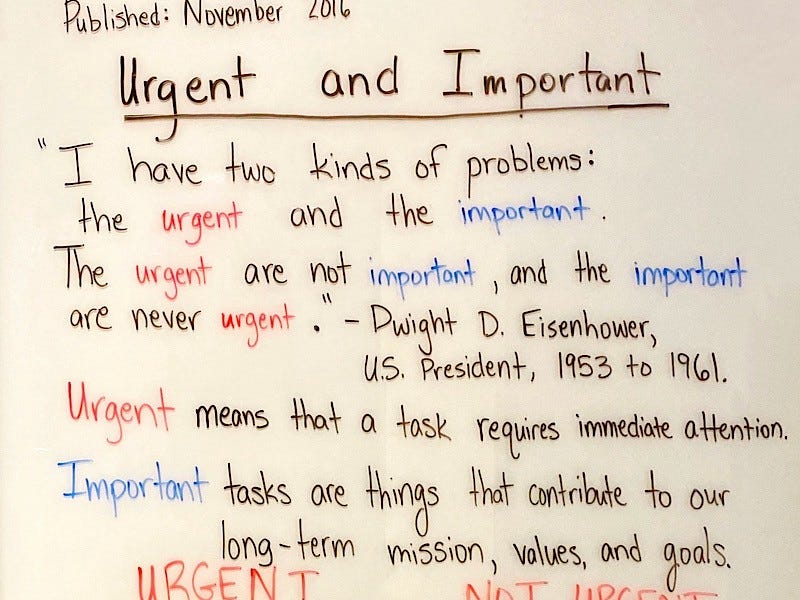 Published: November 2016
Urgent and Important
"I have two kinds of problems:
the urgent and the important.
The urgent are not important, and the important
are never urgent." - Dwight D. Eisenhower,
U.S. President, 1953 to 1961.
Urgent means that a task requires immediate attention.
Important tasks are things that contribute to our
long-term mission, values, and goals.
URGENT NOT URGENT